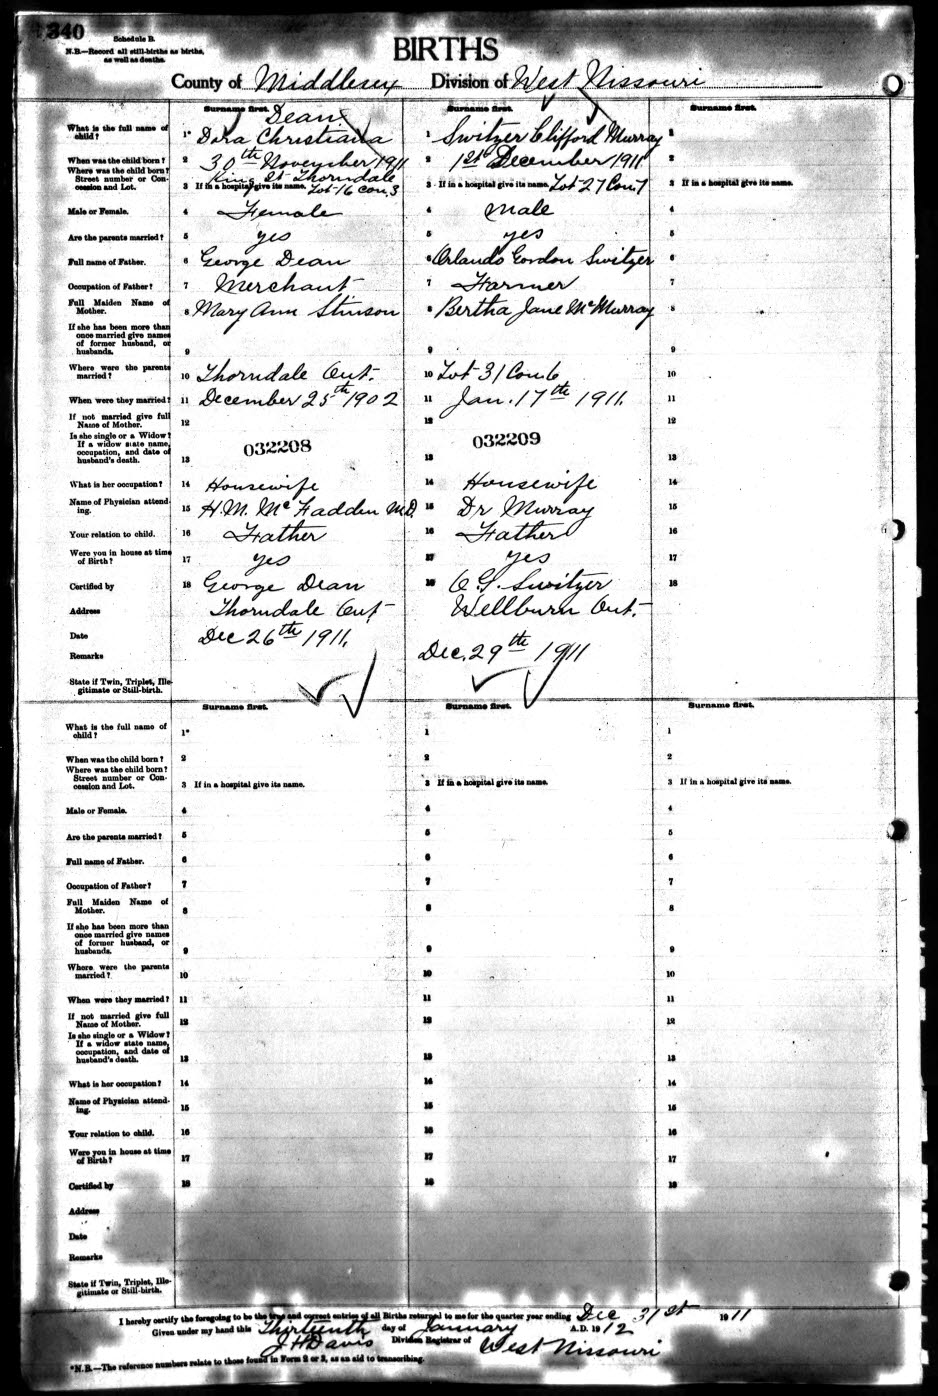 340
Schedule B.
N.B.—Record all still-births as births,
as well as deaths.
BIRTHS
County of Middlesex Division of West Nissouri
Surname first. Surname first. Surname first.
Dean
What is the full name of child? 1* Dora Christiana 1 Switzer Clifford Murray 1
When was the child born? 2 30th November 1911 2 1st December 1911 2
Where was the child born? Street number or Concession and Lot. 3 If in a hospital give its name. King St Thorndale Lot 16 Con. 3 3 If in a hospital give its name. Lot 27 Con 7 3 If in a hospital give its name.
Male or Female. 4 Female 4 Male 4
Are the parents married? 5 yes 5 yes 5
Full name of Father. 6 George Dean 6 Orlando Gordon Switzer 6
Occupation of Father? 7 Merchant 7 Farmer 7
Full Maiden Name of Mother. 8 Mary Ann Stinson 8 Bertha Jane McMurray 8
If she has been more than once married give names of former husband, or husbands. 9 9 9
Where were the parents married? 10 Thorndale Ont. 10 Lot 31 Con 6 10
When were they married? 11 December 25th 1902 11 Jan. 17th 1911. 11
If not married give full Name of Mother. 12 12 12
Is she single or a Widow? If a widow state name, occupation, and date of husband's death. 13 032208 13 032209 13
What is her occupation? 14 Housewife 14 Housewife 14
Name of Physician attending. 15 H. M. McFadden M.D. 15 Dr Murray 15
Your relation to child. 16 Father 16 Father 16
Were you in house at time of Birth? 17 yes 17 yes 17
Certified by 18 George Dean 18 O. G. Switzer 18
Address Thorndale Ont Wellburn Ont.
Date Dec 26th 1911. Dec. 29th 1911
Remarks
State if Twin, Triplet, Illegitimate or Still-birth.
Surname first. Surname first. Surname first.
What is the full name of child? 1* 1 1
When was the child born? 2 2 2
Where was the child born? Street number or Concession and Lot. 3 If in a hospital give its name. 3 If in a hospital give its name. 3 If in a hospital give its name.
Male or Female. 4 4 4
Are the parents married? 5 5 5
Full name of Father. 6 6 6
Occupation of Father? 7 7 7
Full Maiden Name of Mother. 8 8 8
If she has been more than once married give names of former husband, or husbands. 9 9 9
Where were the parents married? 10 10 10
When were they married? 11 11 11
If not married give full Name of Mother. 12 12 12
Is she single or a Widow? If a widow state name, occupation, and date of husband's death. 13 13 13
What is her occupation? 14 14 14
Name of Physician attending. 15 15 15
Your relation to child. 16 16 16
Were you in house at time of Birth? 17 17 17
Certified by 18 18 18
Address
Date
Remarks
State if Twin, Triplet, Illegitimate or Still-birth.
I hereby certify the foregoing to be the true and correct entries of all Births returned to me for the quarter year ending Dec 31st 1911
Given under my hand this Thirteenth day of January A.D. 1912
J H Davis Division Registrar of West Nissouri
*N.B.—The reference numbers relate to those found in Form 2 or 3, as an aid to transcribing.